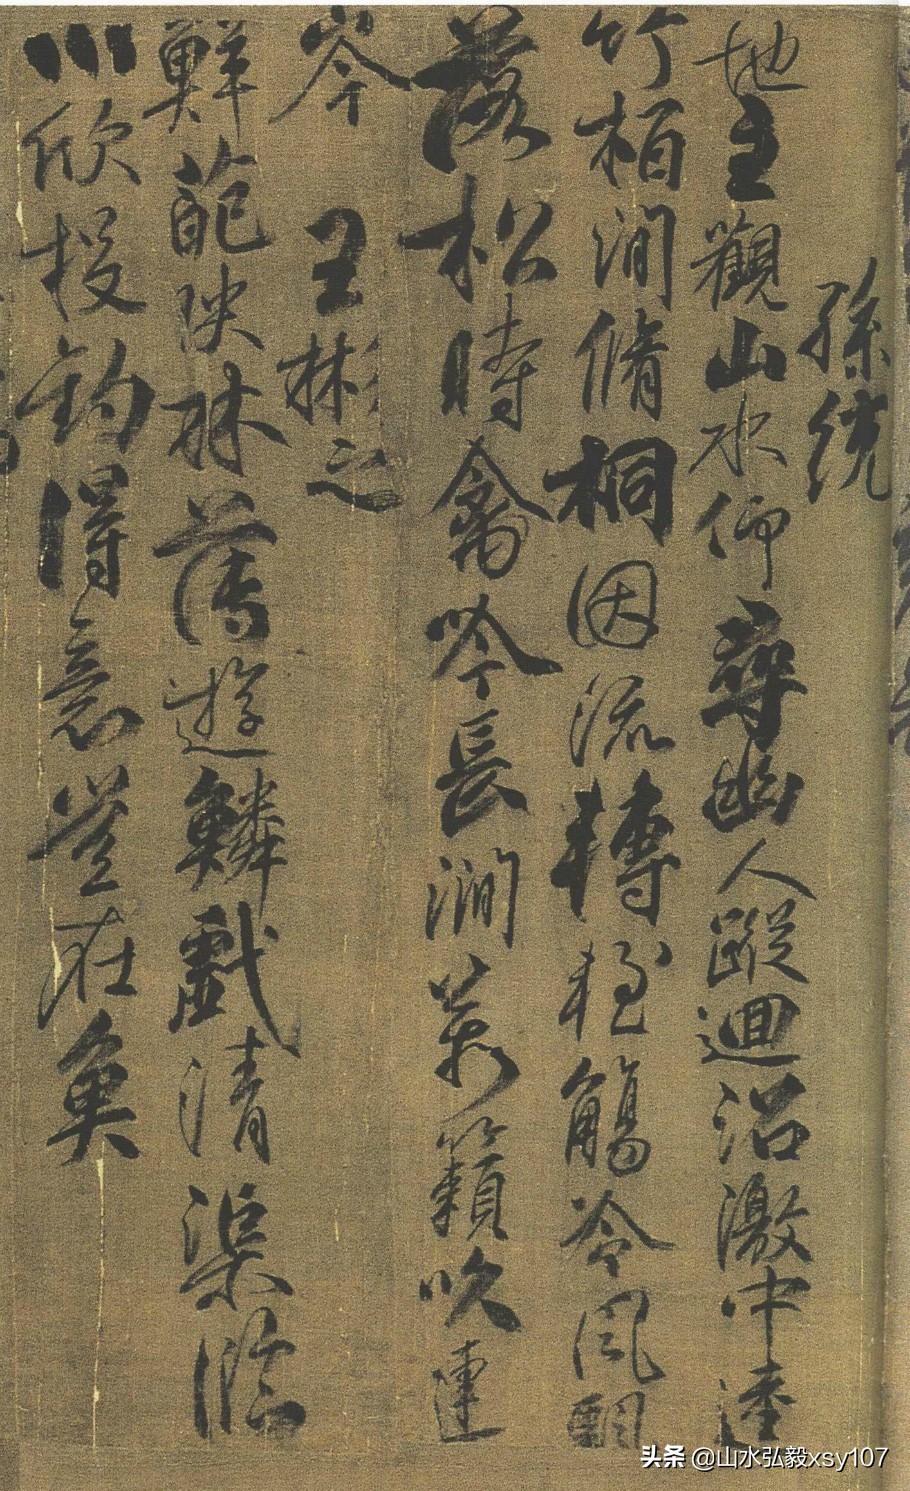 孫統
地主觀山水仰尋幽人蹤迴沼激中逵
竹柏澗脩桐因流轉輕觴冷風飄
落松時禽吟長澗萬籟吹連
岑 王彬之
鮮葩映林薄遊鱗戲清渠臨
川欣投釣得意豈在魚
头条 @山水弘毅xsy107